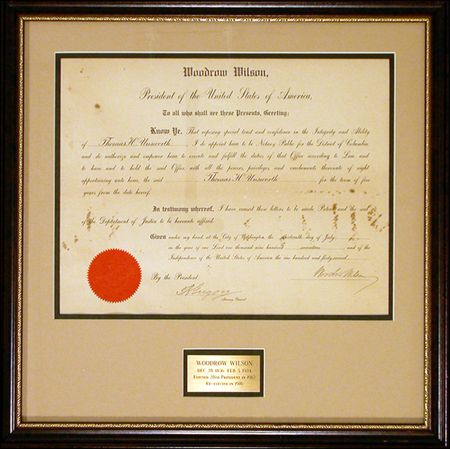 Woodrow Wilson,
President of the United States of America,
To all who shall see these Presents, Greeting:
Know Ye, That reposing special trust and confidence in the Integrity and Ability
of Thomas H. Unsworth I do appoint him to be Notary Public for the District of Columbia
and do authorize and empower him to execute and fulfill the duties of that Office according to Law and
to have and to hold the said Office with all the powers, privileges and emoluments thereunto of right
appertaining unto him, the said Thomas H. Unsworth for the term of five
years from the date hereof.
In testimony whereof, I have caused these letters to be made Patent and the seal
of the Department of Justice to be hereunto affixed.
Given under my hand, at the City of Washington, the day of July
in the year of our Lord one thousand nine hundred seventeen and of the
Independence of the United States of America the one hundred and forty-second
By the President
Woodrow Wilson
Attorney General
WOODROW WILSON
DEC. 28, 1856 FEB. 3, 1924
ELECTED 28TH PRESIDENT IN 1912
RE-ELECTED IN 1916